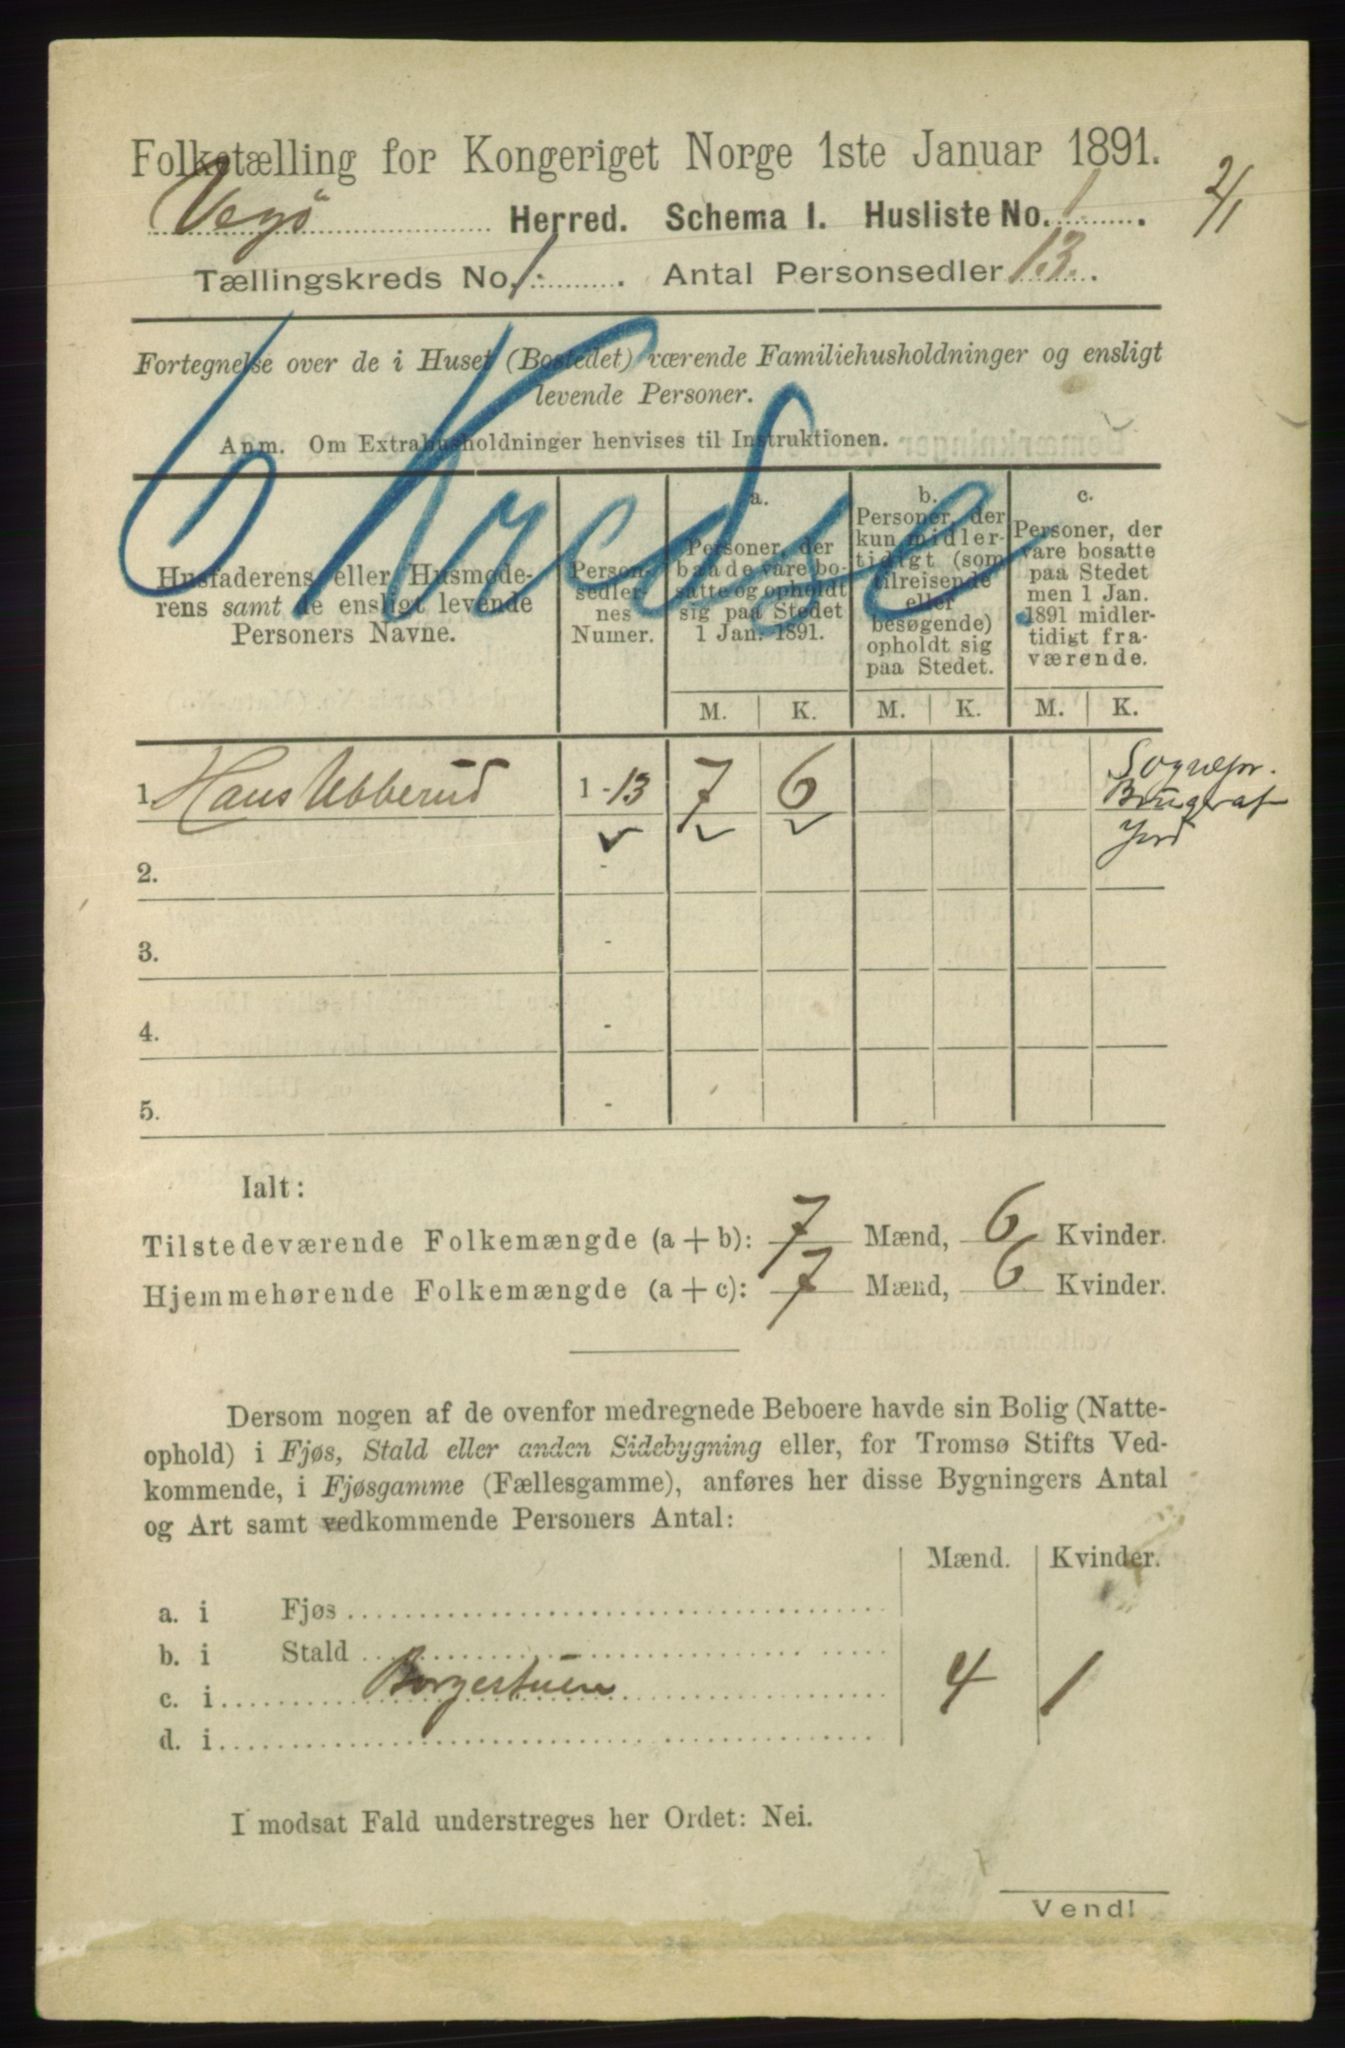 Folketælling for Kongeriget Norge 1ste Januar 1891.
Vegø Herred. Schema I. Husliste No. 1.
2/1
Tællingskreds No. 1. Antal Personsedler 13.
Fortegnelse over de i Huset (Bostedet) værende Familiehusholdninger og ensligt
levende Personer.
Anm. Om Extrahusholdninger henvises til Instruktionen.
1 Kreds
Husfaderens eller Husmode-
rens samt de ensligt levende
Personers Navne.
Person-
sedler-
nes
Numer.
a.
Personer, der
baade vare bo-
satte og opholdt
sig paa Stedet
1 Jan. 1891.
b.
Personer, der
kun midler-
tidigt (som
tilreisende
eller
besøgende)
opholdt sig
paa Stedet.
c.
Personer, der
vare bosatte
paa Stedet
men 1 Jan.
1891 midler-
tidigt fra-
værende.
M. K. M. K. M. K.
1. Hans Ubberud 1 - 13 7 6
Sognepr.
Bruger af
Jord
2. -
3. -
4. -
5. -
Ialt:
Tilstedeværende Folkemængde (a + b): 7 Mænd, 6 Kvinder.
Hjemmehørende Folkemængde (a + c): 7 Mænd, 6 Kvinder.
Dersom nogen af de ovenfor medregnede Beboere havde sin Bolig (Natte-
ophold) i Fjøs, Stald eller anden Sidebygning eller, for Tromsø Stifts Ved-
kommende, i Fjøsgamme (Fællesgamme), anføres her disse Bygningers Antal
og Art samt vedkommende Personers Antal:
Mænd. Kvinder.
a. i Fjøs
b. i Stald
c. i Borgestuen 4 1
d. i
I modsat Fald understreges her Ordet: Nei.
Vend!